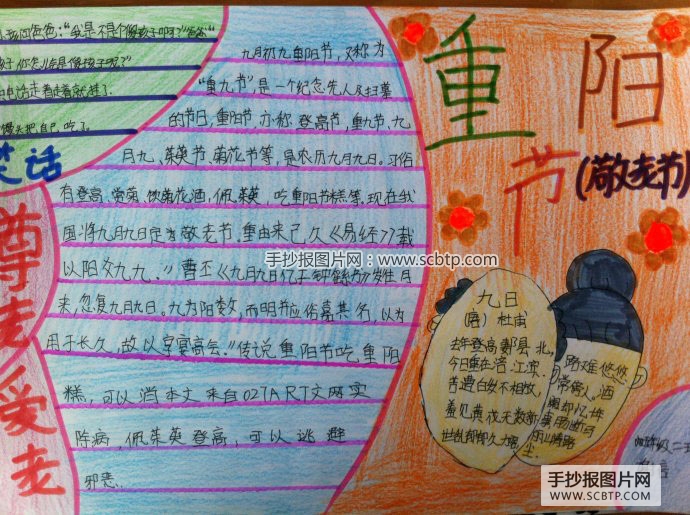 爸爸：“我是不是个傻孩子啊？”爸爸
孩子 你怎儿会是傻孩子呢？”
走着走着就掉了.
把自己吃了
笑话
尊老爱老
九月初九重阳节，又称为
“重九节”，是一个纪念先人及扫墓
的节日，重阳节，亦称登高节，重九节、九
月九、茱萸节、菊花节等，是农历九月九日。习俗
有登高、赏菊、饮菊花酒，佩茱萸，吃重阳节糕等，现在我
国将九月九日定为敬老节，重由来已久《易经77载
以阳爻九九，”曹丕《九月九日
来，忽复九月九日。九为阳数，而明并应俗嘉其名，以为
用于长久，故以享宴高会。”传说重阳节吃重阳
糕，可以消本文来自027ART文网实
阵病，佩茱萸登高，可以逃避
邪恶.
重阳
节(敬老节)
九日
(唐) 杜甫
去年登高郪县北,
今日重在涪江滨.
苦遭白发不相放,
羞见黄花无数新
世乱郁郁久为客
路难悠悠
常傍人。酒
阑却忆十年
事肠断骊
山清路
尘.
四年级二
手抄报图片网：www.scbtp.com
手抄报图片网
WWW.SCBTP.COM